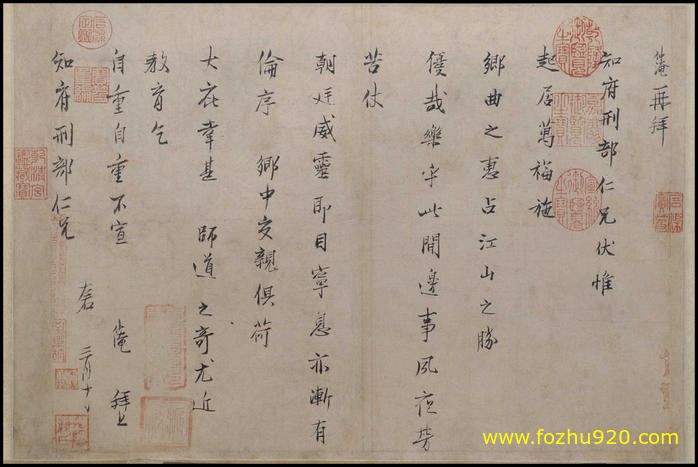 仲淹再拜
知府刑部仁兄伏惟
起居萬福施
鄉曲之惠占江山之勝
優哉樂乎此間邊事夙夜勞
苦仗
朝廷威靈即目寧息亦漸有
倫序 鄉中交親俱荷
大庇幸甚 師道之奇尤近
教育乞
自重自重不宣 仲淹 拜上
知府刑部仁兄
左右 三月十日
www.fozhu920.com